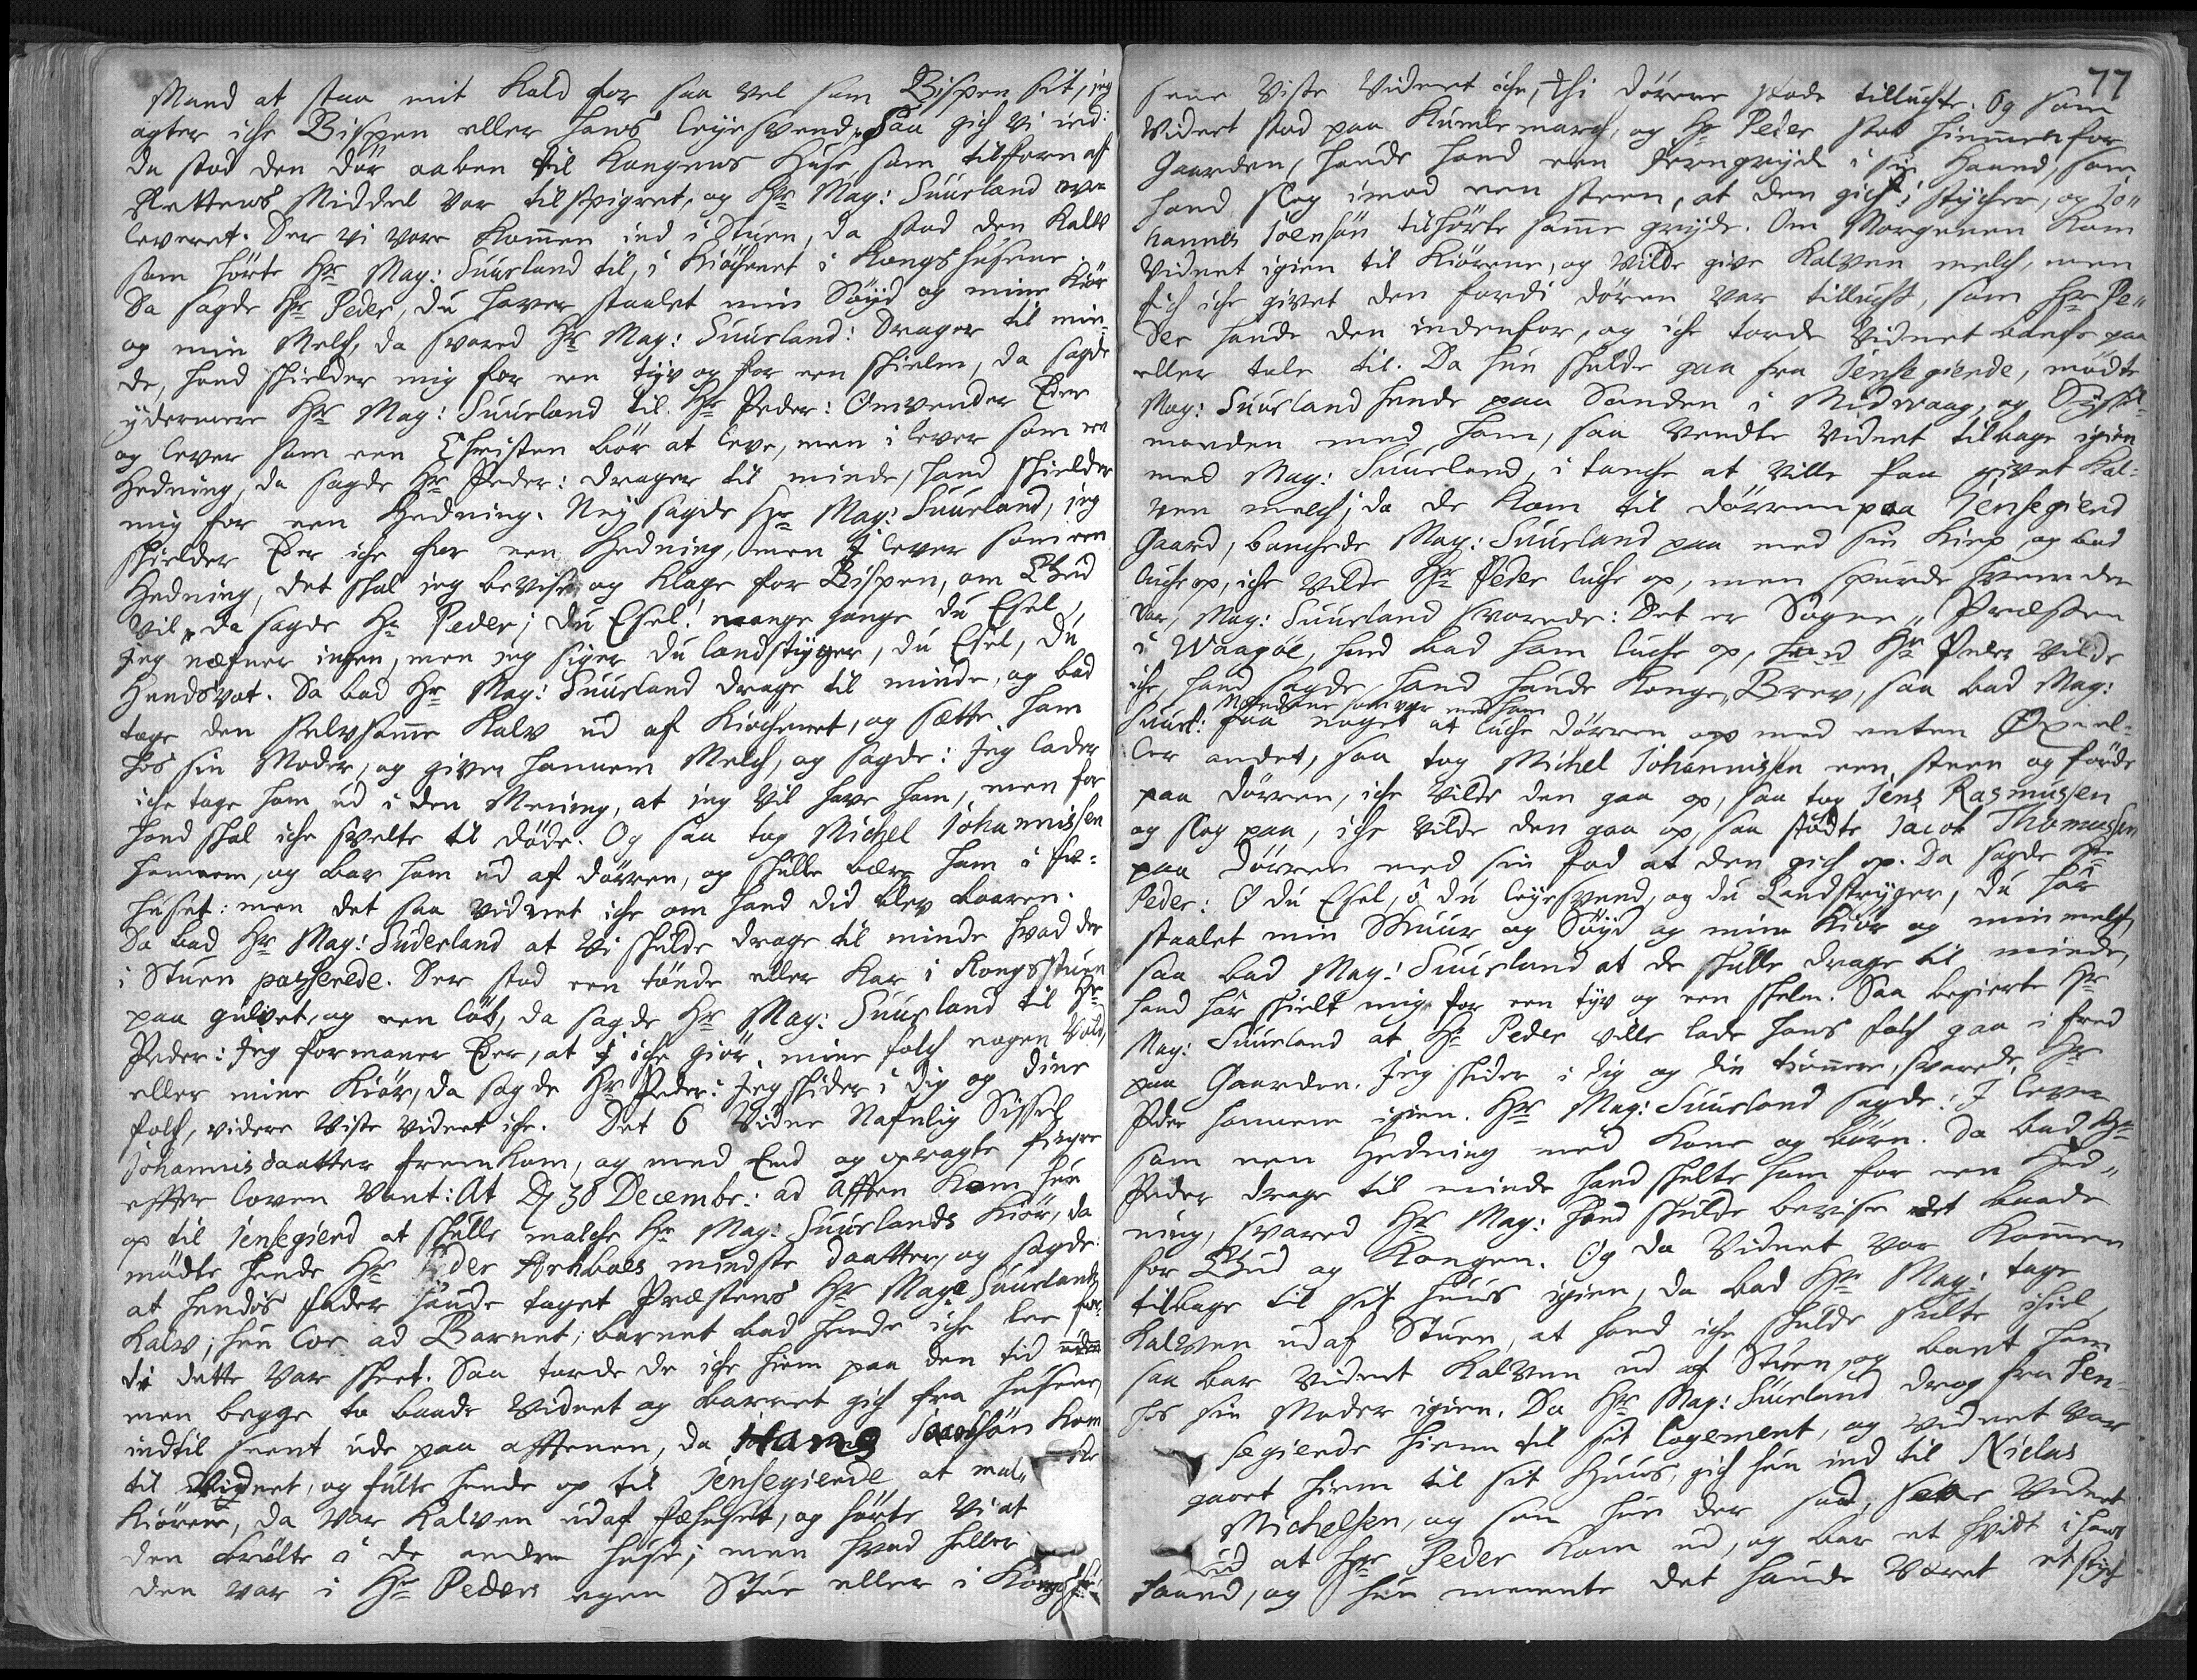 Mand at staa mit Kald for saa vel som Bispen sit, jeg
agter iche Bispen eller hans leyesvend. Saa gich vi ind:
da stod den dör aaben til Kongens Huse som tilforn af
Rettens Middel var tilspigret, og Hr Mag: Suursland over
leveret. Der vi vare kommen ind i Stuen, da stod den Kalv
som hörte Hr Mag: Suursland til, i Kiöchenet i Kongshusene.
Da sagde Hr Peder, du haver staalet min Söyd og mine Kiör
og min Melch, da svared Hr Mag: Suursland: Drager til min-
de, hand skielder mig for en tyv og for een skielm, da sagde
ydermere Hr Mag: Suursland til Hr Peder: Omvender Eder
og lever som een Christen bör at leve, men i lever som en
Hedning, da sagde Hr Peder: drager til minde, hand skielder
mig for een Hedning. Nej sagde Hr Mag: Suursland, jeg
skielder Eder iche for een Hedning, men I lever som een
Hedning, det skal jeg bevise og klage for Bispen, om Gud
vil, da sagde Hr Peder; du Esel! mange gange du Esel,
Jeg næfner ingen, men jeg siger du landstryger, du Esel, du
Hundsvot. Da bad Hr Mag: Suursland drage til minde, og bad
tage den selvsamme Kalv ud af Kiöchenet, og sætte ham
hos sin Moder, og giver hannem Melch, og sagde: Jeg lader
iche tage ham ud i den Mening, at jeg vil have ham, men for
hand skal iche svelte til döde. Og saa tog Michel Johannissen
hannem, og bar ham ud af dörren, og skulle bære ham i fæ-
huset: men det saa vidnet iche om hand did blev baaren.
Da bad Hr Mag: Suderland at vi skulde drage til minde hvad der
i Stuen passerede. Der stod een tönde eller Kar i Kongsstuen
paa gulvet, og een löb, da sagde Hr Mag: Suursland til Hr
Peder: Jeg formaner Eder, at I iche giör mine folch nogen vold,
eller mine Kiör, da sagde Hr Peder: Jeg skider i dig og dine
folch, videre viste vidnet iche. Det 6 Vidne Nafnlig Sissel
Johannisdaatter fremkom, og med Eed og opragte fingre
effter loven vant: At Dj 30 Decembr: ad Afften kom hun
op til Jensegierd at skulle malche Hr Mag: Suurslands Kiör, da
mödte hende Hr Peder Arhboes mindste daatter, og sagde:
at hendes fader hafde taget Præstens Hr Mag: Suurslands
Kalv; hun loe ad Barnet; barnet bad hende iche lee for-
di dette var skeet. Saa torde de iche hiem paa den tid
men begge to baade vidnet og barnet gich fra husene,
indtil seent ude paa afftenen, da Hans Jacobsön kom
til Vidnet, og fulte hende op til Jensegierde at mal-
Kiörene, da var Kalven udaf fæhuset, og hörte vi at
den brölte i de andre huse; men hvad heller
den var i Hr Peders egen Stue eller i Kongshu-
77
sene viste vidnet iche, thi dörene stode tilluchte. Og som
Vidnet stod paa Kumlemarch, og Hr Peder stod hiemmenfor
Gaarden, hafde hand een Jerngryde i sin Haand, som
hand slog imod een steen, at den gich i stycher, og Jo-
hannis Joensön tilhörte samme gryde. Om Morgenen kom
Vidnet igien til Kiörene, og vilde give Kalven melch, men
fich iche givet den fordi dören var tillucht, som Hr Pe-
der hafde den indenfor, og iche torde vidnet banche paa
eller tale til. Da hun skulde gaa fra Jensegierde, mödte
Mag: Suursland hende paa Sanden i Midvaag, og Syssel-
manden med ham, saa vendte vidnet tilbage igien
med Mag: Suursland, i tanche at ville faa givet Kal-
ven melch; da de kom til dörren paa Jensegierd
Gaard, banchede Mag: Suursland paa med sin Kiep og bad
luche op, iche vilde Hr Peder luche op, men spurde hvem der
var, Mag: Suursland svarede: Det er Sogne-Præsten
i Waagöe, hand bad ham luche op, Hr Peder vilde
iche, hand sagde hand hafde Konge-Brev, saa bad Mag:
Mændene som var med ham
Suursl: faa noget at luche dörren op med enten Öxe el-
ler andet, saa tog Michel Johannissen een steen og förde
paa dörren, iche vilde den gaa op, saa tog Jens Rasmussen
og slog paa, iche vilde den gaa op, saa stödte Jacob Thomassen
paa dörren med sin fod at den gich op. Da sagde Hr
Peder: O du Esel, ô du leyesvend, og du Landstryger, du har
staalet min Smuur og Söyd og mine Kiör og min melch,
saa bad Mag: Suursland at de skulle drage til minde,
hand har skielt mig for een tyv og een skelm. Saa begierte Hr
Mag: Suursland at Hr Peder ville lade hans folch gaa i fred
paa Gaarden. Jeg skider i dig og din tiönnere, svarede Hr
Peder hannem igien. Hr Mag: Suursland sagde: I lever
som een Hedning med Kone og börn. Da bad Hr
Peder drage til minde hand skelte ham for een Hed-
ning, svared Hr Mag: hand skulde bevise det baade
for Gud og Kongen. Og da Vidnet var kommen
tilbage til sit Huus igien, da bad Hr Mag: tage
Kalven udaf Stuen, at hand iche skulde sulte ihiel,
saa bar vidnet Kalven ud af Stuen, og bant ham
hos sin Moder igien. Da Hr Mag: Suursland drog fra Jen-
segierde hiem til sit logement, og vidnet var
gaaet hiem til sit Huus, gich hun ind til Niclas
Michelsen, og som hun der sad, saae vidnet
ud at Hr Peder kom ud, og bar et hvidt i hans
haand, og hun meente det hafde været et stych